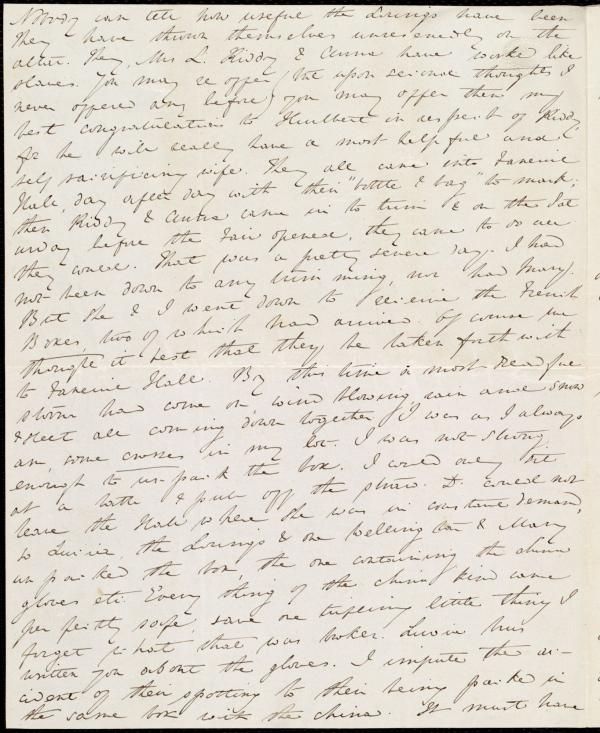 Nobody can tell how useful the Lorings have been
They have thrown themselves unreservedly on the
altar. They, Mrs L. Kiddy & Anna have worked like
slaves. You may re offer (but upon second thoughts I
never offered any before) you may offer then my
best congratulations to Hurlbert in respect of Kiddy
for he will really have a most helpful and
self sacrificing wife. They all came into Faneuil
Hall, day after day with their "bottle & bag" to mark;
then Kiddy & Anna came in to trim & on the Sat
urday before the Fair opened, they came to do all
they could. That was a pretty severe day. I had
not been down to any trimming, nor had Mary.
But she & I went down to receive the French
Boxes, two of which had arrived. Of course we
thought it best that they be taken forthwith
to Faneuil Hall. By this time a most dreadful
storm had come on, wind blowing, rain and snow
& sleet all coming down together. I was as I always
am, some crosses in my lot. I was not strong
enough to un-pack the box. I could only sit
at a table & pull off the straw. D. could not
leave the Hall where she was in constant demand,
so Louisa, the Lorings & one & Mary
un packed the box the one containing the china
gloves etc. Every thing of the china kind came
perfectly safe, save one trifling little thing I
forget what that was broken. Louisa has
written you about the gloves. I impute the ac-
cident of their spotting to their being packed in
the same box with the china. It must have